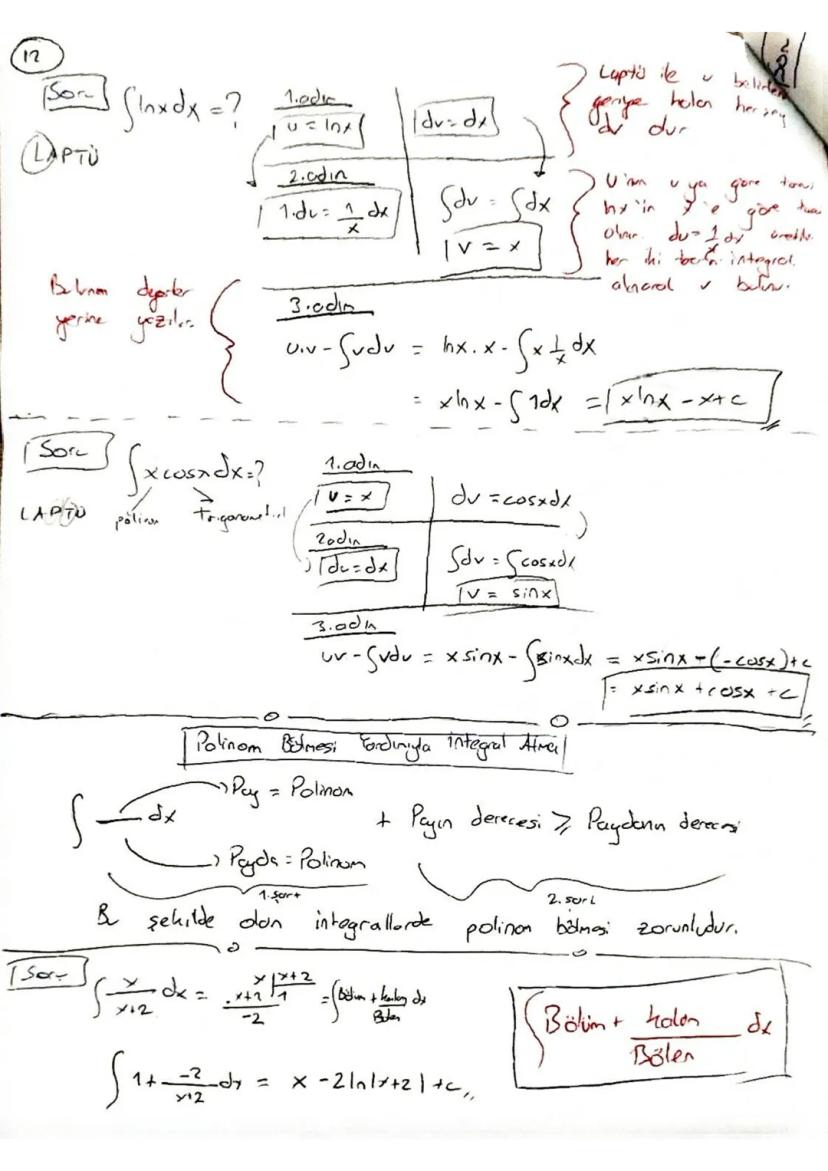 12
Soru ∫lnxdx=?
LAPTÜ
1.adım
u = lnx
dv = dx
Laptü ile u belirlenir
geriye kalan herşey
dv dur
2.adım
1.du = 1/x dx
∫dv = ∫dx
V = x
U'nun u ya göre türevi
lnx'in x'e göre
her iki integral
alınarak v bulunur.
Bulunan değerler
yerine yazılır.
3.adım
u.v - ∫vdu = lnx.x - ∫x 1/x dx
= xlnx - ∫1dx = xlnx - x+c
Soru ∫xcosxdx=?
LAPTÜ polinom Trigonometri
1.adım
u = x
dv = cosxdx
2.adım
du = dx
∫dv = ∫cosxdx
V = sinx
3.adım
uv - ∫vdu = xsinx - ∫sinxdx = xsinx - (-cosx)+c
= xsinx + cosx + c
Polinom Bölmesi Yardımıyla integral Alma
∫ — dx
Pay = Polinom
Payda = Polinom
+ Payın derecesi ≥ Paydanın derecesi
1.şart
2.şart
Bu şekilde olan integrallerde polinom bölmesi zorunludur.
Soru ∫ x/(x+2) dx =
x | x+2
x+2 | 1
-2
= ∫Bölüm + kalan/Bölen dx
∫Bölüm + kalan/Bölen dx
∫ 1 + -2/(x+2) dx = x - 2ln|x+2| + c,,